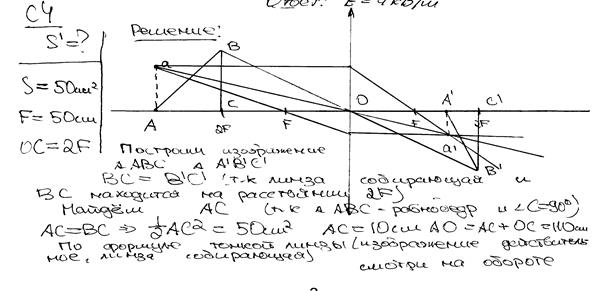 Ответ: E = 4 кВ/м
C4
S' = ?
S = 50 см²
F = 50 см
OC = 2F
Решение:
a B
A C 2F F O F A' C' 2F
a' B'
Построим изображение
△ABC △A'B'C'
BC = B'C' (т.к линза собирающая и
BC находится на расстоянии 2F)
Найдём AC (т.к △ABC - равнобедр и ∠C=90°)
AC=BC ⇒ ½AC² = 50 см² AC = 10 см AO = AC + OC = 110 см
По формуле тонкой линзы (изображение действитель-
ное, линза собирающая)
смотри на обороте